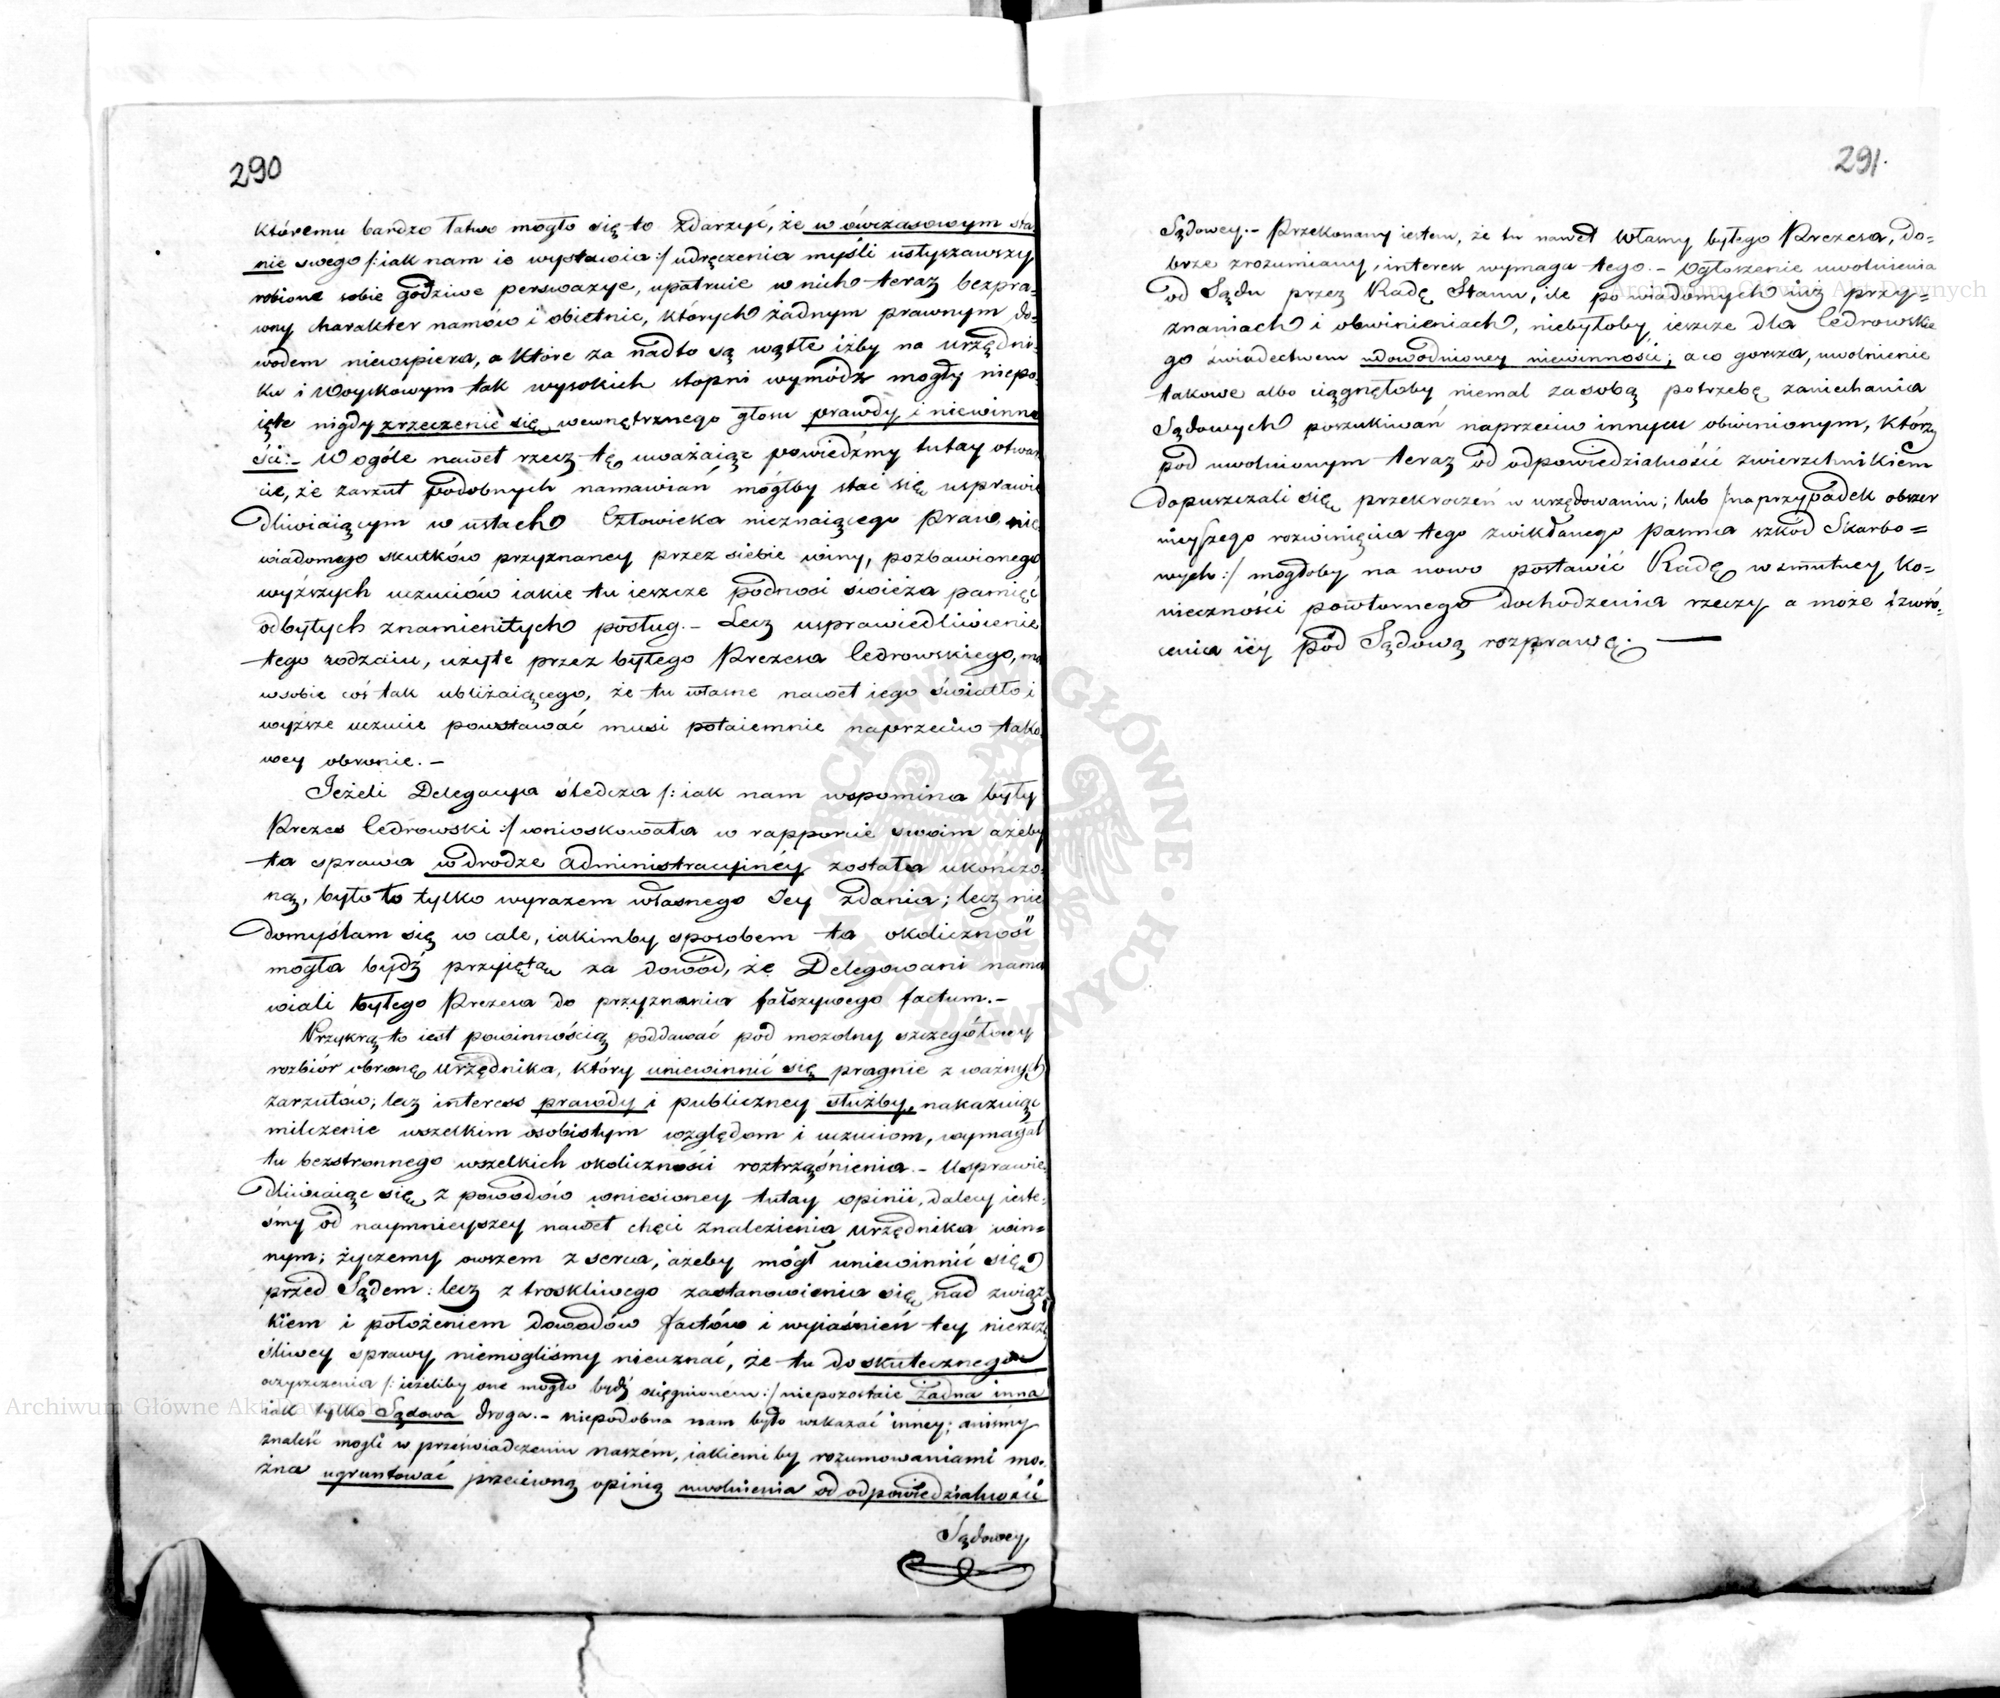 290
któremu bardzo łatwo mogło się to zdarzyć, że w ówczasowym sta
nie swego /: iak nam ie wystawia :/ udręczenia myśli usłyszawszy
robione sobie godziwe perswazye, upatruie w nich teraz bezpra=
wny charakter namów i obietnic, których żadnym prawnym do=
wodem niewspiera, a które za nadto są wątłe iżby na urzędni=
ku i Woyskowym tak wysokich stopni wymódz mogły niepo=
ięte nigdy zrzeczenie się wewnętrznego głosu prawdy i niewinno
ści:- W ogóle nawet rzecz tę uważaiąc powiedzmy tutay otwar
cie, że zarzut podobnych namawiań mógłby stać się usprawie
dliwiaiącym w ustach Człowieka nieznaiącego praw nie
wiadomego skutków przyznaney przez siebie winy, pozbawionego
wyższych uczuciów iakie tu ieszcze podnosi świeża pamięć
odbytych znamienitych posług.- Lecz usprawiedliwienie
tego rodzaiu, użyte przez byłego Prezesa Cedrowskiego, ma
w sobie coś tak ubliżaiącego, że tu własne nawet iego światło i
wyższe uczucie powstawać musi potaiemnie naprzeciw tako
wey obronie.-
Jeżeli Delegacya śledcza /: iak nam wspomina były
Prezes Cedrowski :/ wnioskowała w rapporcie swoim ażeby
ta sprawa w drodze administracyjnéy została ukończo=
ną, było to tylko wyrazem własnego Jey zdania; lecz nie
domyślam się w cale, iakimby sposobem ta okoliczność
mogła bydź przyjętą za dowód, że Delegowani nama
wiali byłego Prezesa do przyznania fałszywego factum.-
Przykrą to iest powinnością poddawać pod mozolny szczegółowy
rozbiór obronę urzędnika, który uniewinnić się pragnie z ważnych
zarzutów; lecz interess prawdy i publiczney służby, nakazuiąc
milczenie wszelkim osobistym względom i uczuciom, wymagał
tu bezstronnego wszelkich okoliczności roztrząśnienia.- Usprawie=
dliwiaiąc się z powodów wniesioney tutay opinii, dalecy ieste=
śmy od naymnieyszey nawet chęci znalezienia urzędnika win=
nym; życzemy owszem z serca, ażeby mógł uniewinnić się
przed Sądem: lecz z troskliwego zastanowienia się nad związ
kiem i położeniem dowodów factów i wyiaśnień tey nieszczę
śliwey sprawy niemogliśmy nieuznać, że tu do skutecznego
oczyszczenia /: ieżeliby one mogło bydź osięgnioném :/ niepozostaie żadna inna
iak tylko Sądowa droga.- niepodobna nam było wskazać inney; aniśmy
znaleść mogli w przeświadczeniu naszém, iakiemi by rozumowaniami mo=
żna ugruntować przeciwną opinią uwolnienia od odpowiedzialności
Sądowey
291.
Sądowey.- Przekonany iestem, że tu nawet własny byłego Prezesa, do=
brze zrozumiany, interess wymaga tego.- Ogłoszenie uwolnienia
od Sądu przez Radę Stanu, ile po wiadomych iuż przy=
znaniach i obwinieniach, niebyłoby ieszcze dla Cedrowskie
go świadectwem udowodnioney niewinności; a co gorsza, uwolnienie
takowe albo ciągnęłoby niemal za sobą potrzebę zaniechania
Sądowych poszukiwań naprzeciw innym obwinionym, którzy
pod uwolnionym teraz od odpowiedzialności zwierzchnikiem
dopuszczali się przekroczeń w urzędowaniu; lub /: na przypadek obszer
nieyszego rozwinięcia tego zwikłanego pasma szkód Skarbo=
wych :/ mogłoby na nowo postawić Radę w smutney ko=
nieczności powtórnego dochodzenia rzeczy a może i zwró=
cenia iéy pod Sądową rozprawę.-
Archiwum Główne Akt Dawnych
Archiwum Główne Akt Dawnych
ARCHIWUM GŁÓWNE AKT DAWNYCH